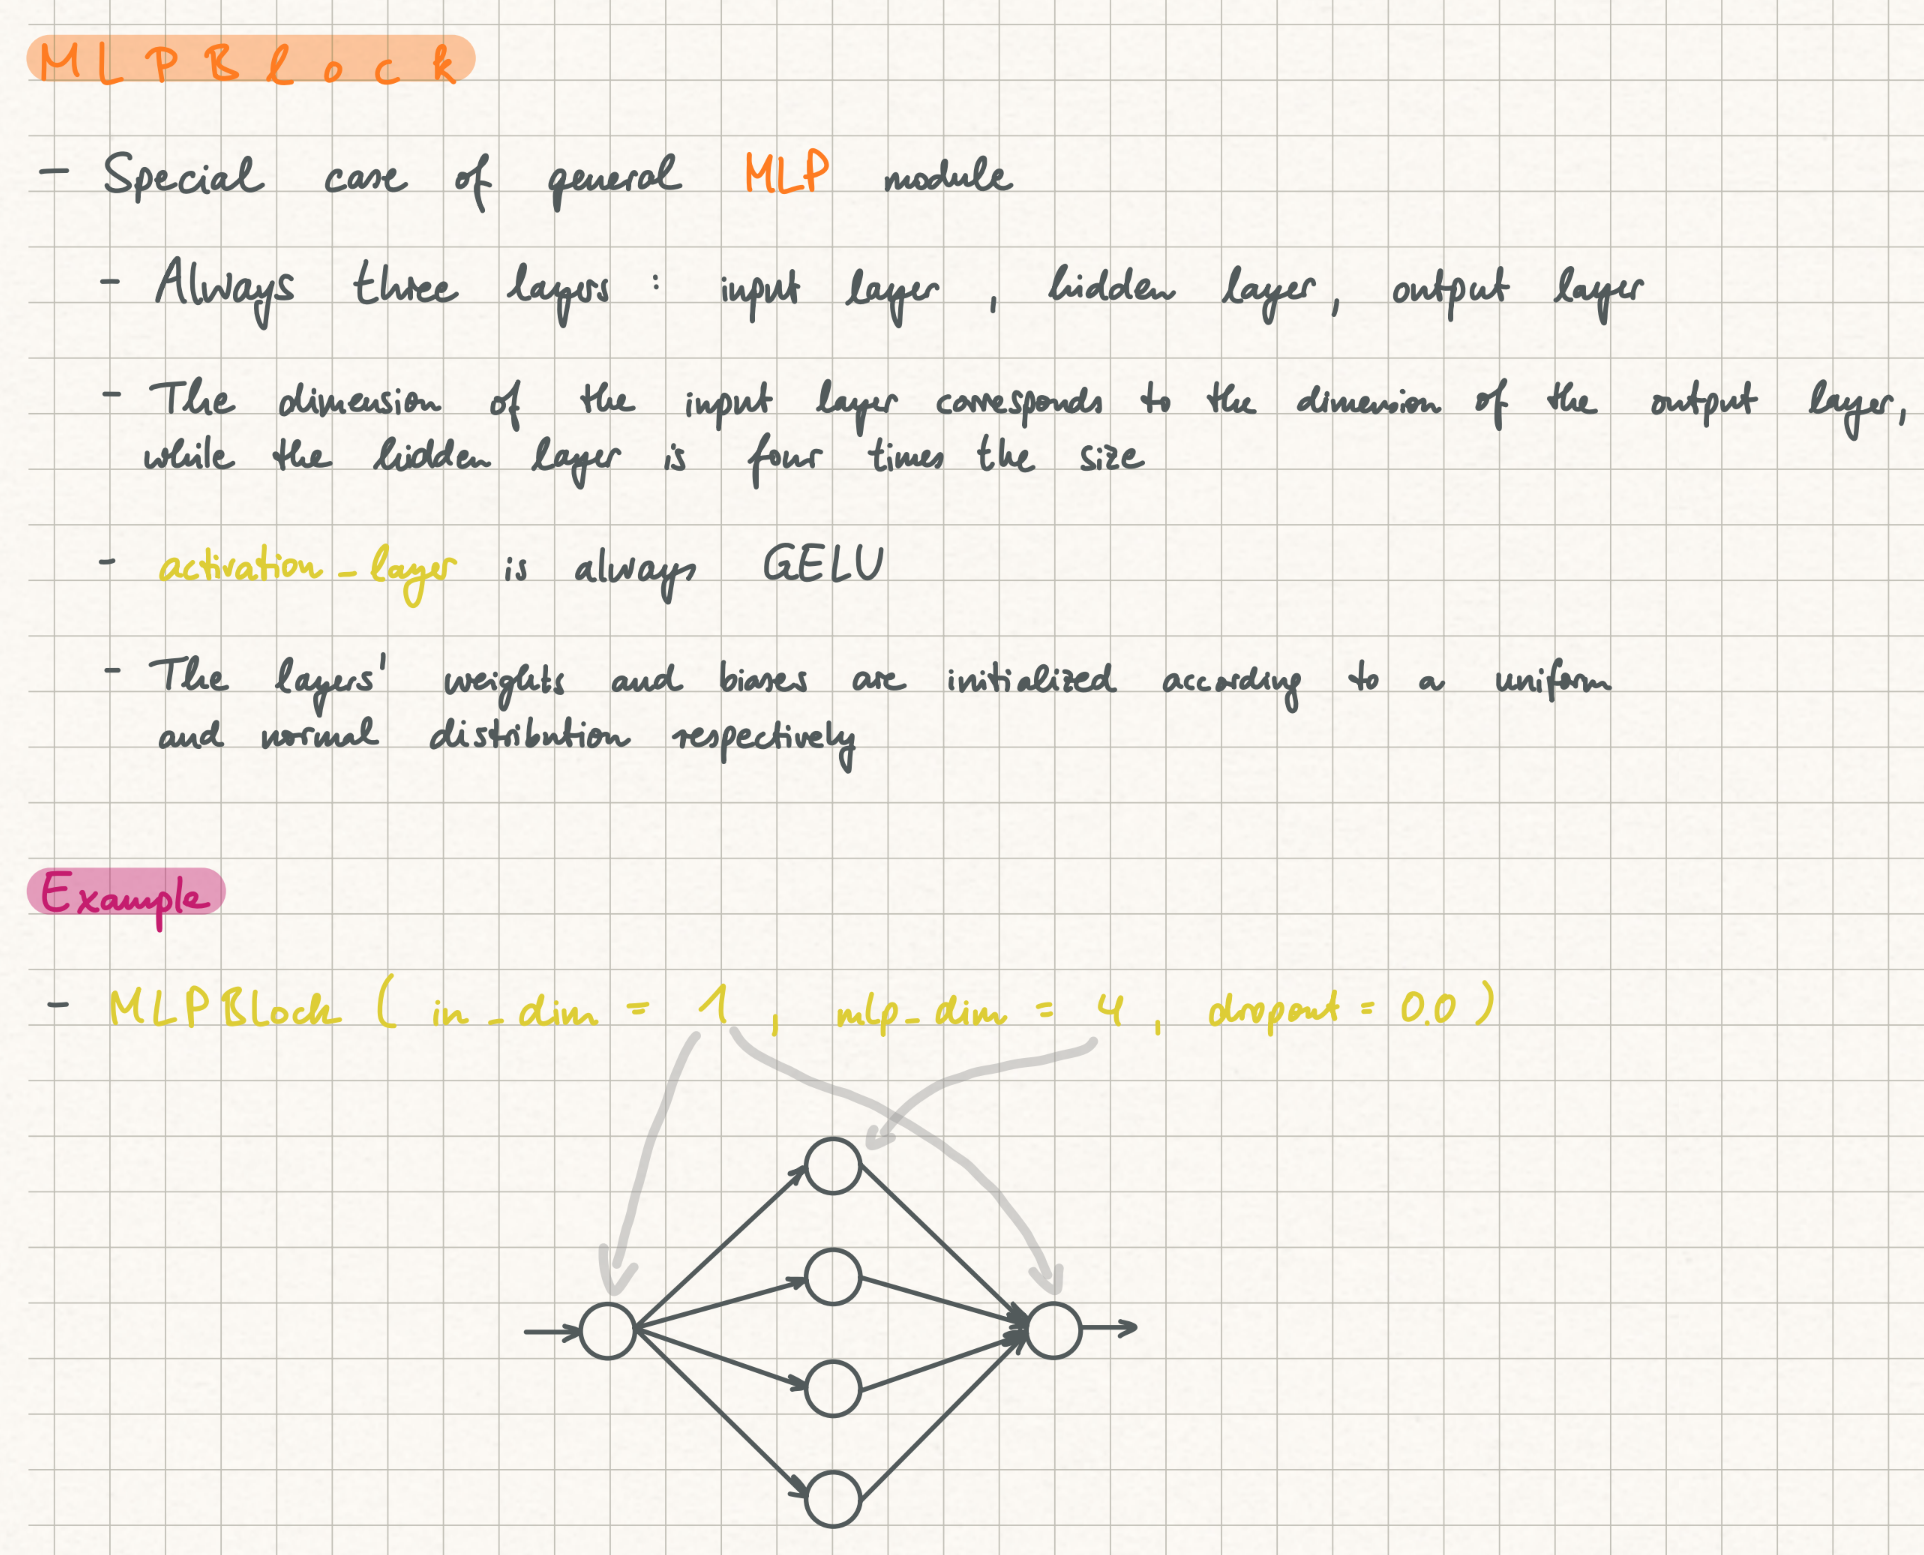 MLPBlock
- Special case of general MLP module
- Always three layers : input layer , hidden layer, output layer
- The dimension of the input layer corresponds to the dimension of the output layer,
while the hidden layer is four times the size
- activation_layer is always GELU
- The layers' weights and biases are initialized according to a uniform
and normal distribution respectively
Example
- MLPBLock ( in_dim = 1 , mlp_dim = 4 , dropout = 0.0 )